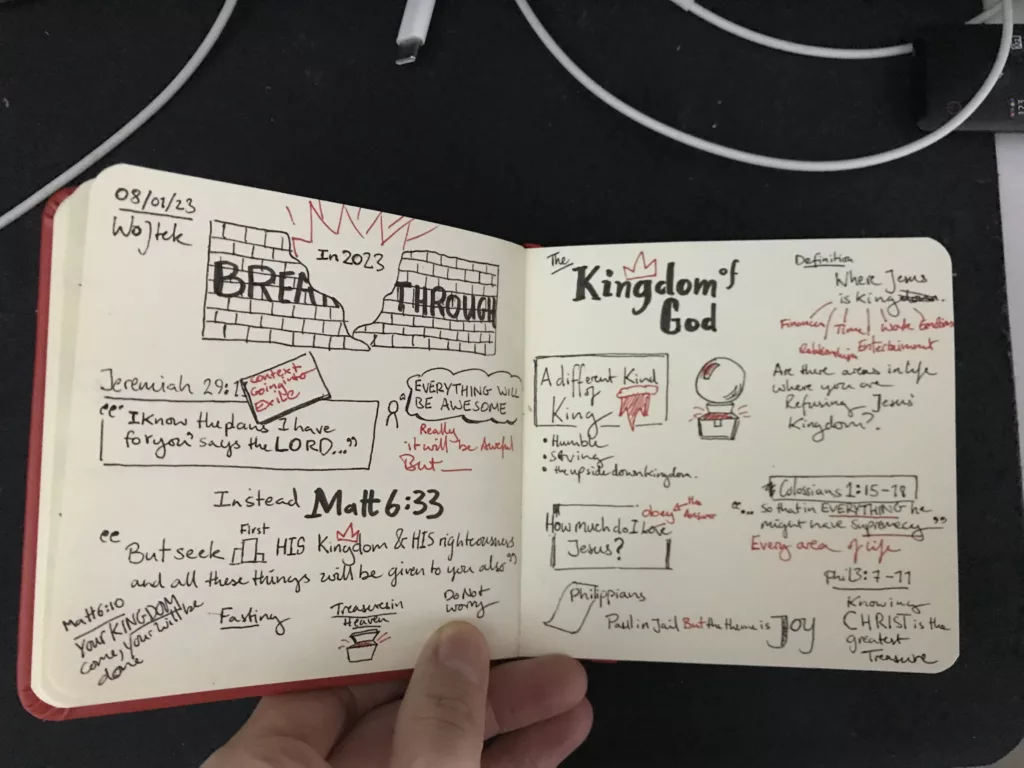 08/01/23
Wojtek
In 2023
BREAK THROUGH
Jeremiah 29:1
Context
Going into
Exile
"I know the plans I have
for you" says the LORD..."
EVERYTHING WILL
BE AWESOME
Really
it will be Aweful
But
Instead Matt 6:33
"But seek First HIS Kingdom & HIS righteousness
and all these things will be given to you also"
Matt 6:10
Your KINGDOM
come, your will be
done
Fasting
Treasures in
Heaven
Do Not
worry
The
Kingdom of
God
A different Kind
of
King
• Humble
• Serving
• the upside down kingdom.
How much do I love
Jesus?
obey is the Answer
Philippians
Paul in Jail But the theme is JOY
Definition
Where Jesus
is King
Finances Time Work Emotions
Relationships Entertainment
Are there areas in life
where you are
Refusing Jesus'
Kingdom?
Colossians 1:15-18
"... so that in EVERYTHING he
might have supremacy"
Every area of life
Phil 3:7-11
Knowing
CHRIST is the
greatest
Treasure
123